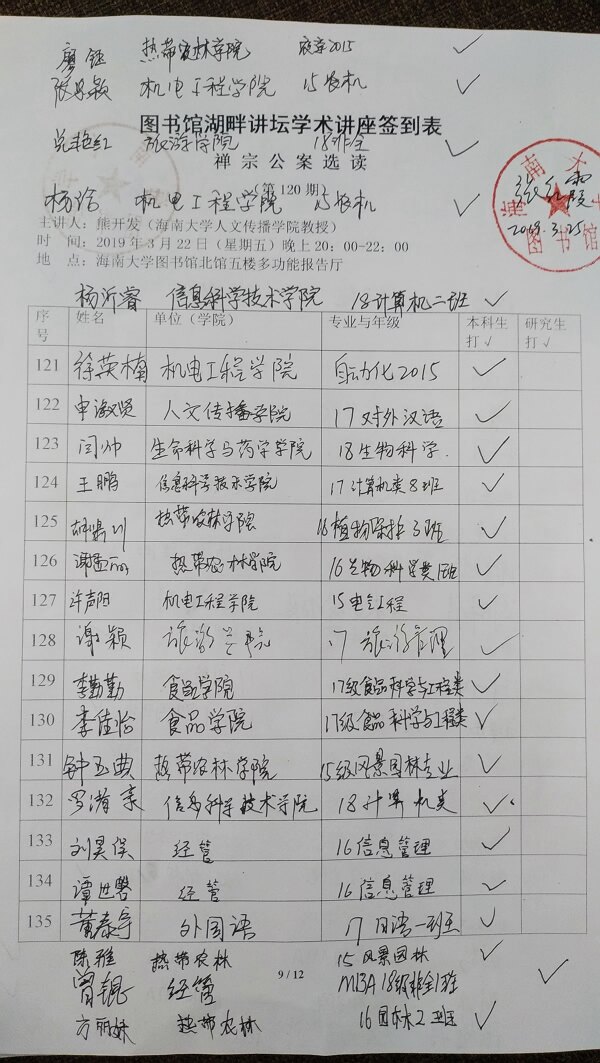 廖钰 热带农林学院 农学2015 ✓
张思颖 机电工程学院 15农机 ✓
图书馆湖畔讲坛学术讲座签到表
艳红 旅游学院 18非全 ✓
禅宗公案选读
杨玲 机电工程学院 15农机 ✓
(第120期)
主讲人：熊开发（海南大学人文传播学院教授）
时 间：2019年3月22日（星期五）晚上20：00-22：00
地 点：海南大学图书馆北馆五楼多功能报告厅
海南大学图书馆
张红霞
2019.3.25
杨沂睿 信息科学技术学院 18计算机二班 ✓
序号 姓名 单位（学院） 专业与年级 本科生打√ 研究生打√
121 徐英楠 机电工程学院 自动化2015 ✓
122 申淑贤 人文传播学院 17对外汉语 ✓
123 闫帅 生命科学与药学学院 18生物科学 ✓
124 王鹏 信息科学技术学院 17计算机类8班 ✓
125 热带农林学院 16植物保护3班 ✓
126 谢孟丽 热带农林学院 16生物科学类 班 ✓
127 许声阳 机电工程学院 15电气工程 ✓
128 谢颖 旅游学院 17旅游管理 ✓
129 李勤勤 食品学院 17级食品科学与工程类 ✓
130 李佳怡 食品学院 17级食品科学与工程类 ✓
131 钟玉典 热带农林学院 15级风景园林专业 ✓
132 罗 豪 信息科学技术学院 18计算机类 ✓
133 刘昊俣 经管 16信息管理 ✓
134 谭世馨 经管 16信息管理 ✓
135 董泰宇 外国语 17日语一班 ✓
陈雅 热带农林 15风景园林 ✓
9 / 12
曾锟 经管 MBA 18级非全1班 ✓
方丽娇 热带农林 16园林2班 ✓